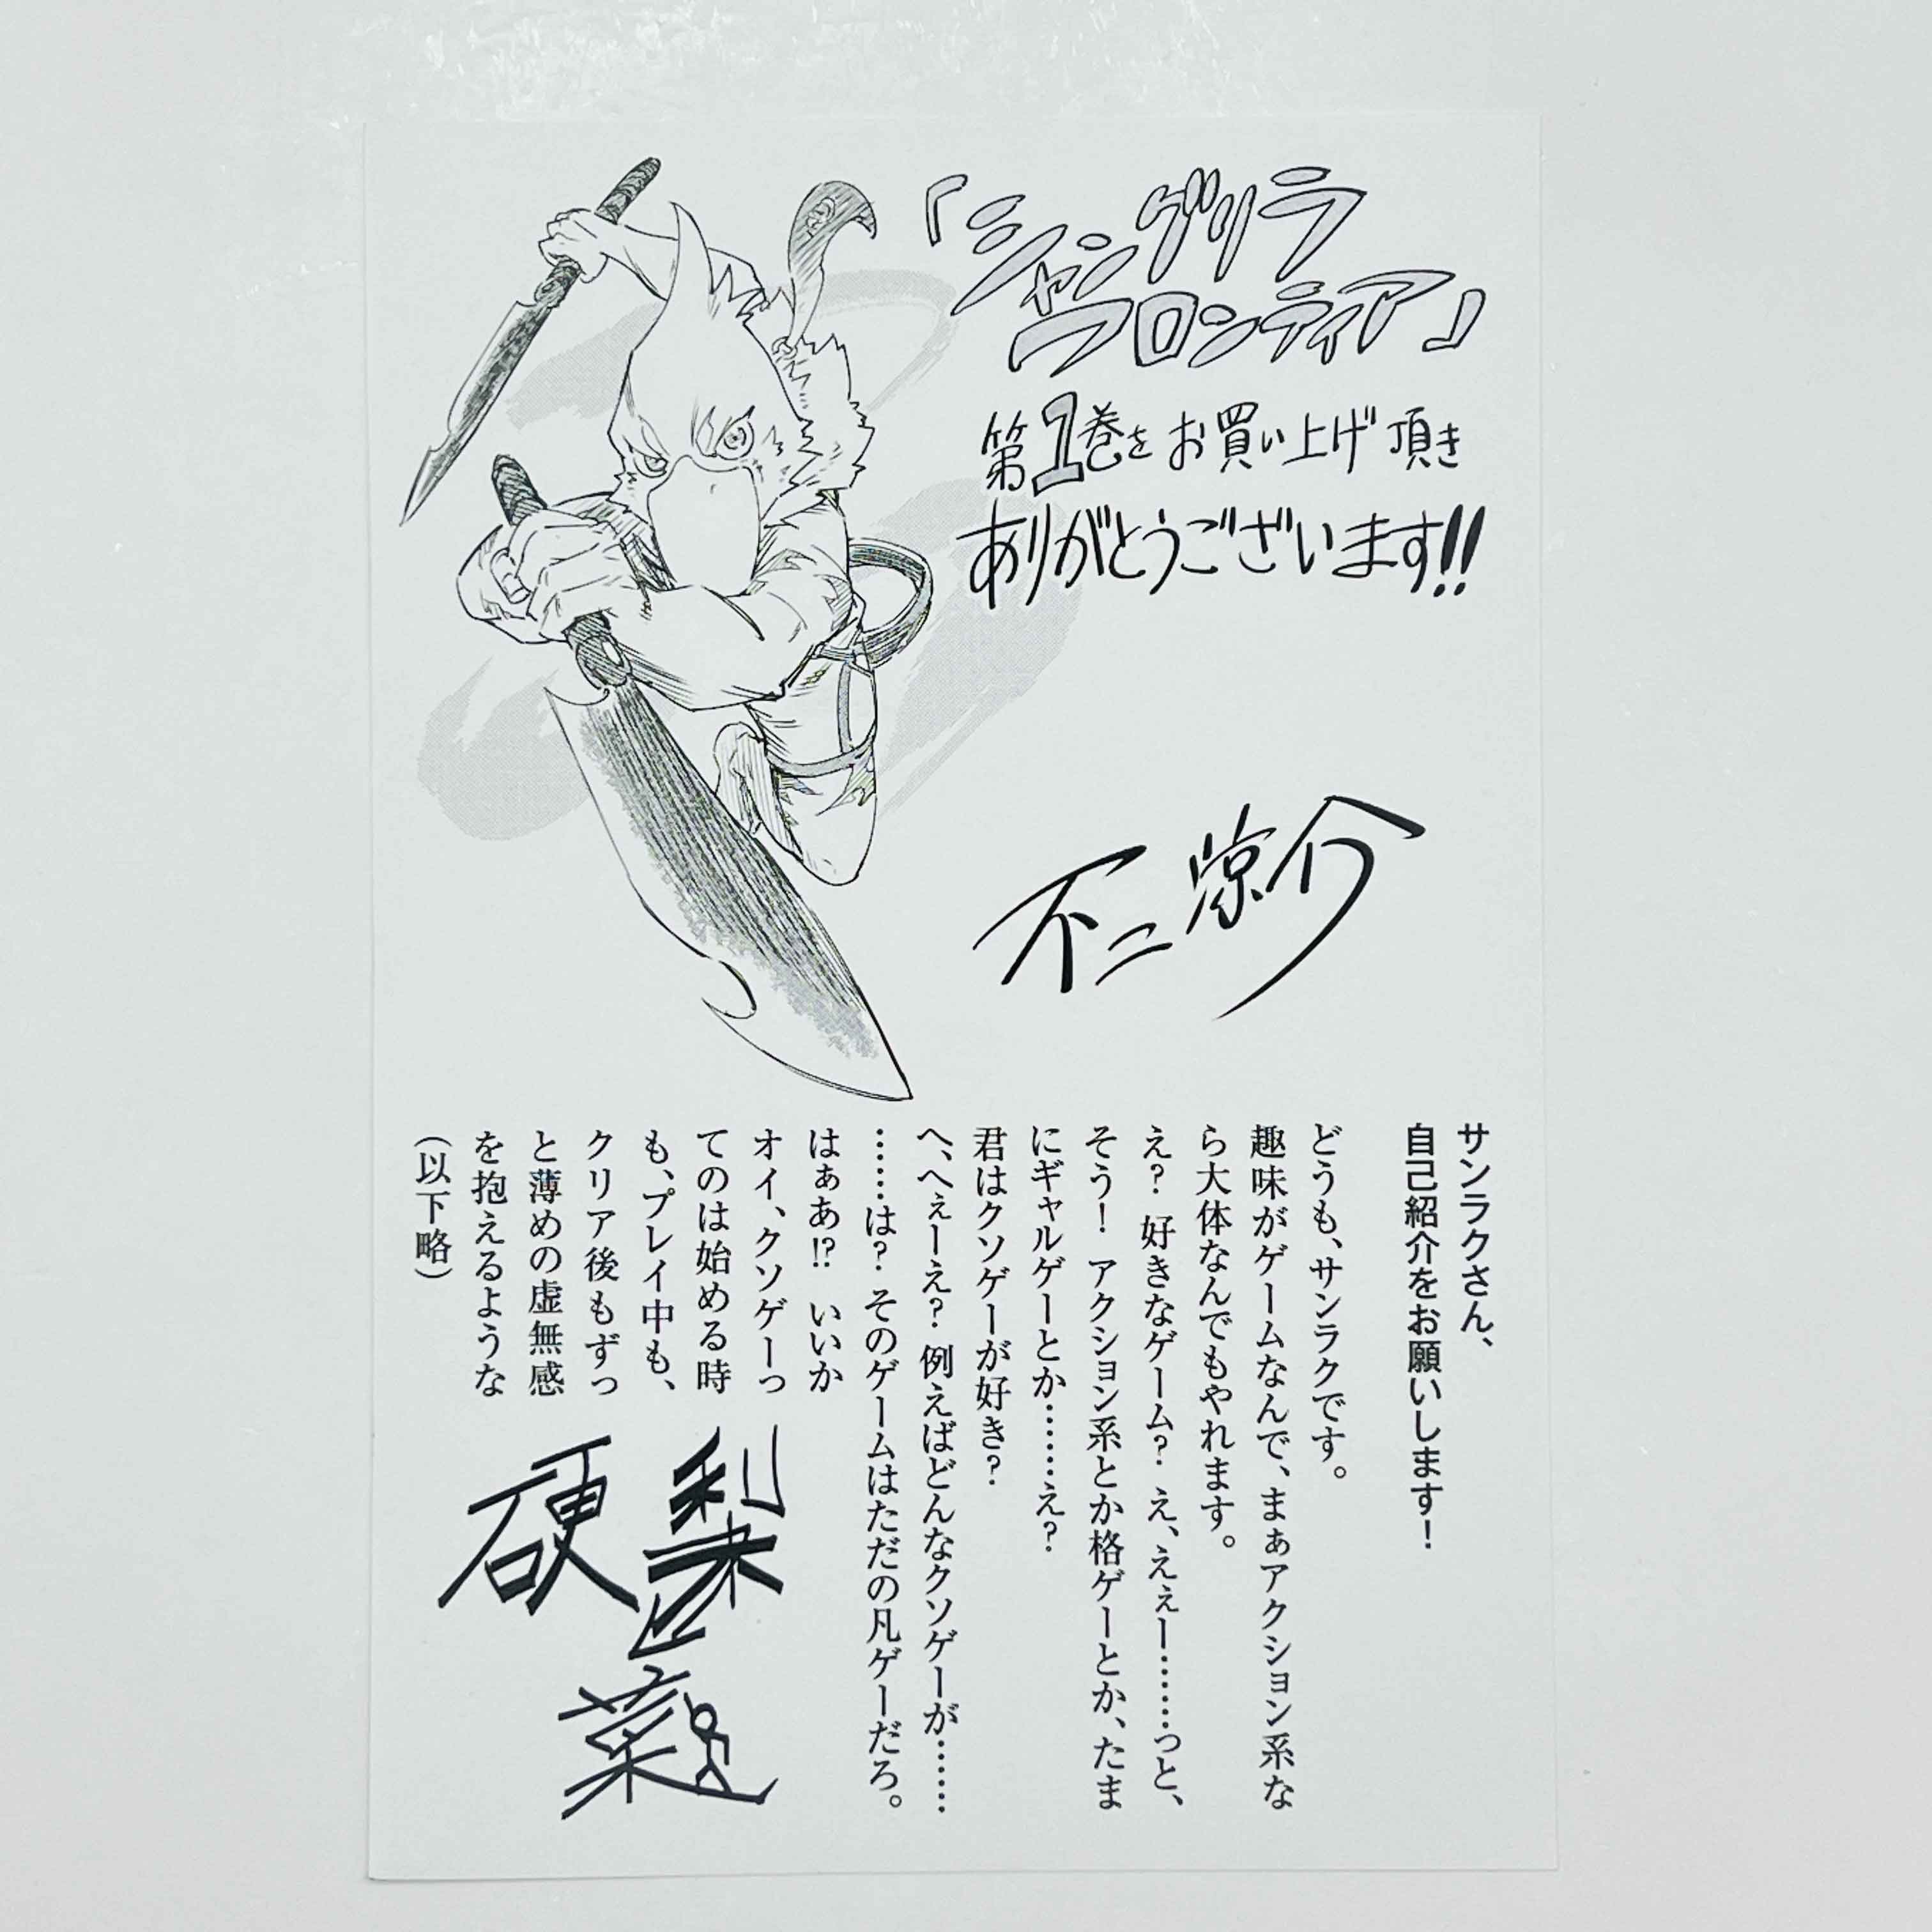 「シャングリラ
フロンティア」
第1巻をお買い上げ頂き
ありがとうございます!!
不二涼介
サンラクさん、
自己紹介をお願いします！
どうも、サンラクです。
趣味がゲームなんで、まぁアクション系な
ら大体なんでもやれます。
え？ 好きなゲーム？ え、えぇー……っと、
そう！ アクション系とか格ゲーとか、たま
にギャルゲーとか……え？
君はクソゲーが好き？
へ、へぇーえ？ 例えばどんなクソゲーが……
……は？ そのゲームはただの凡ゲーだろ。
はぁあ!? いいか
オイ、クソゲーっ
てのは始める時
も、プレイ中も、
クリア後もずっ
と薄めの虚無感
を抱えるような
（以下略）
硬梨菜